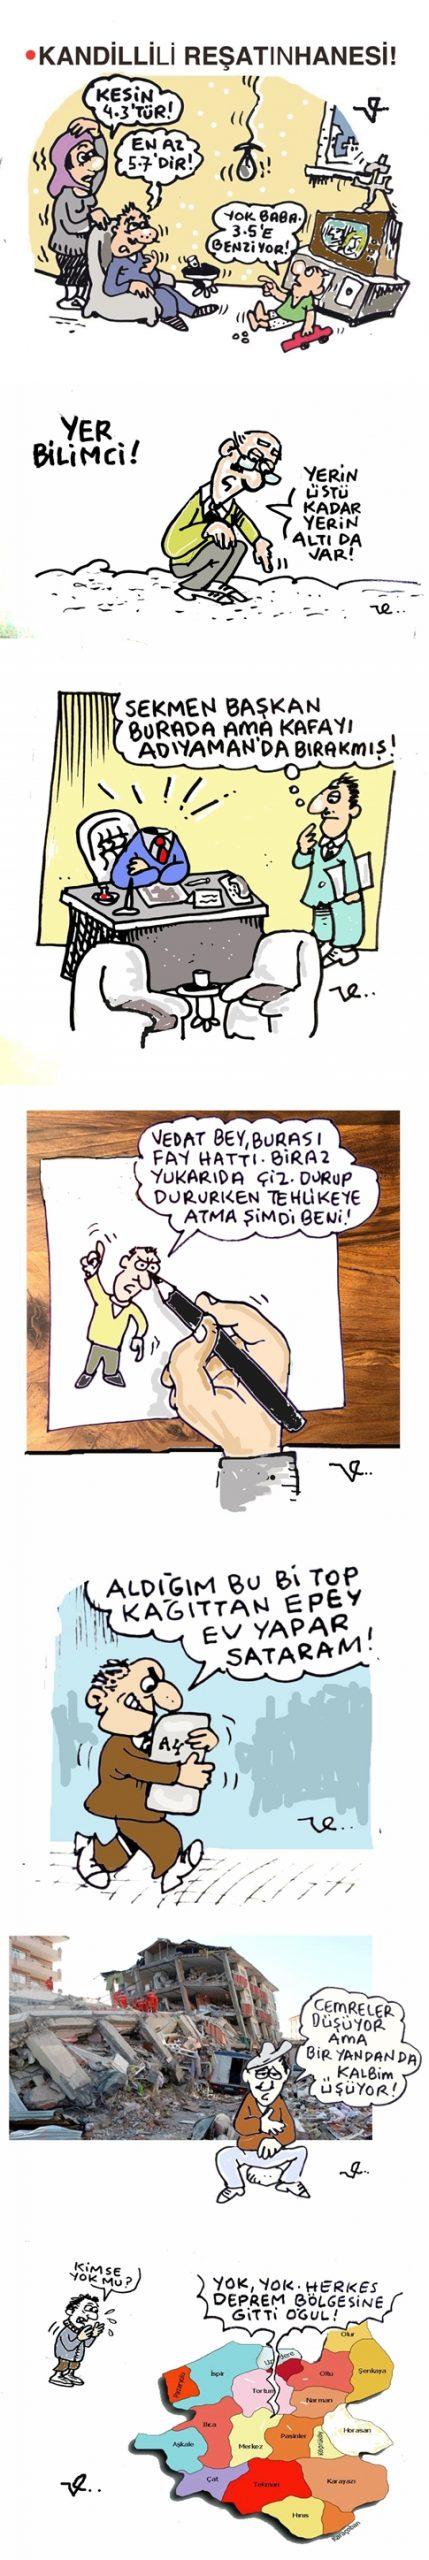 •KANDİLLİLİ REŞATINHANESİ!
KESİN
4.3'TÜR!
EN AZ
5.7'DİR!
YOK BABA.
3.5'E
BENZİYOR!
YER
BİLİMCİ!
YERİN
ÜSTÜ
KADAR
YERİN
ALTI DA
VAR!
SEKMEN BAŞKAN
BURADA AMA KAFAYI
ADIYAMAN'DA BIRAKMIŞ!
VEDAT BEY, BURASI
FAY HATTI. BİRAZ
YUKARIDA ÇİZ. DURUP
DURURKEN TEHLİKEYE
ATMA ŞİMDİ BENİ!
ALDIĞIM BU Bİ TOP
KAĞITTAN EPEY
EV YAPAR
SATARAM!
A4
CEMRELER
DÜŞÜYOR
AMA
BİR YANDAN DA
KALBİM
ÜŞÜYOR!
KİMSE
YOK MU?
YOK, YOK. HERKES
DEPREM BÖLGESİNE
GİTTİ OĞUL!
Olur
İspir
Tortum
Oltu
Şenkaya
Pazaryolu
Narman
Ilıca
Horasan
Aşkale
Merkez
Pasinler
Köprüköy
Çat
Tekman
Karayazı
Hınıs
Karaçoban